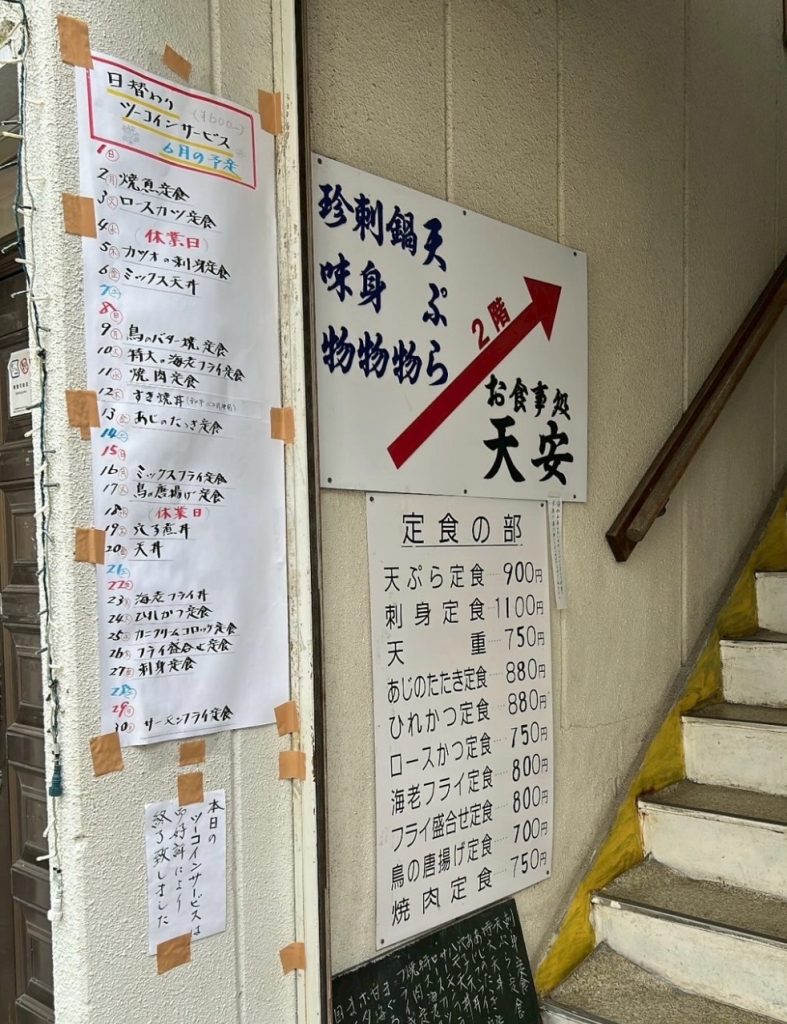 日替わり (¥600-)
ツーコインサービス
6月の予定
1(日)
2(月) 焼魚定食
3(火) ロースカツ定食
4(水) (休業日)
5(木) カツオの刺身定食
6(金) ミックス天丼
7(土)
8(日)
9(月) 鳥のバター焼定食
10(火) 特大の海老フライ定食
11(水) 焼肉定食
12(木) すき焼丼
13(金) あじのたたき定食
14(土)
15(日)
16(月) ミックスフライ定食
17(火) 鳥の唐揚げ定食
18(水) (休業日)
19(木) 穴子煮丼
20(金) 天丼
21(土)
22(日)
23(月) 海老フライ丼
24(火) ひれかつ定食
25(水) カニクリームコロッケ定食
26(木) フライ盛合せ定食
27(金) 刺身定食
28(土)
29(日)
30(月) サーモンフライ定食
本日の
ツーコインサービスは
好評により
終了致しました
天ぷら
鍋物
刺身物
珍味物
2階
お食事処
天安
定食の部
天ぷら定食 900円
刺身定食 1100円
天重 750円
あじのたたき定食 880円
ひれかつ定食 880円
ロースかつ定食 750円
海老フライ定食 800円
フライ盛合せ定食 800円
鳥の唐揚げ定食 700円
焼肉定食 750円